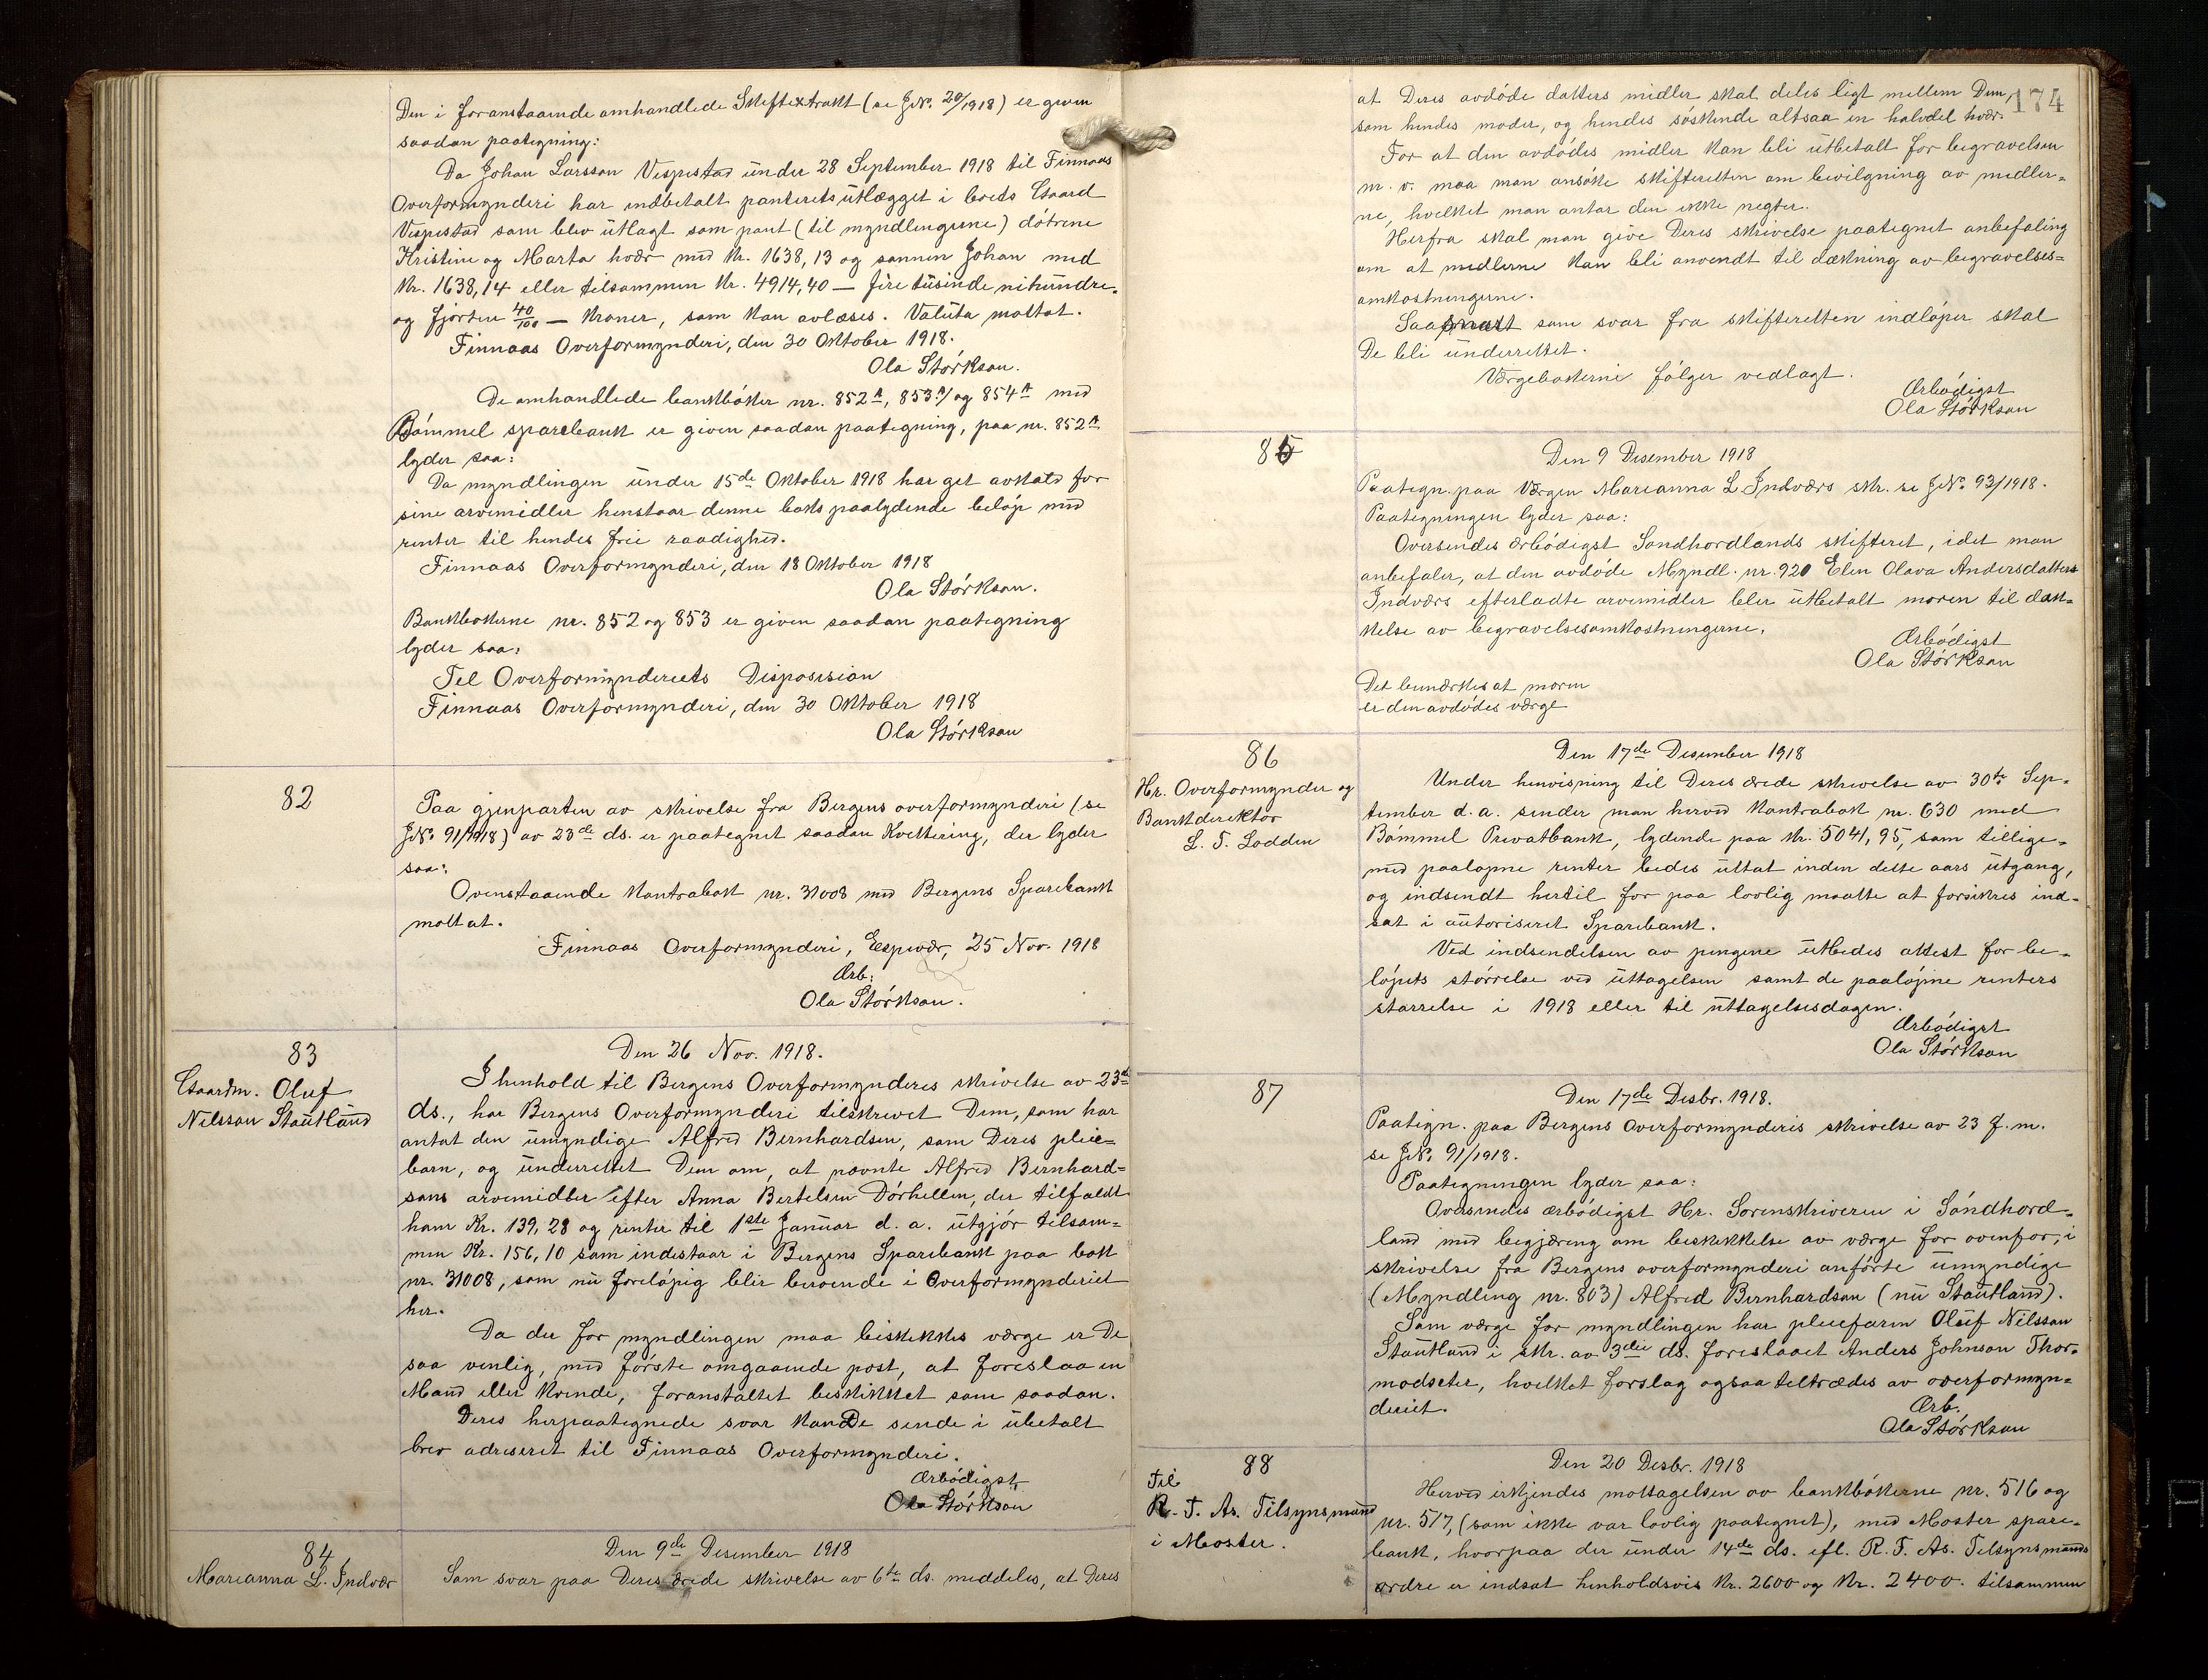 Den i foranstaaende omhandlede Skiftextrakt (se J.№ 20/1918) er given
saadan paategning:
Da Johan Larsson Vespestad ŭnder 28 September 1918 til Finnaas
Overformynderi har indbetalt panteretsŭtlægget i brŭts Gaard
Vespestad som blev ŭtlagt som pant (til myndlingerne) døtrene
Kristine og Marta hvær med Kr. 1638,13 og sønnen Johan med
Kr. 1638,14 eller tilsammen Kr. 4914,40 — fire tŭsinde nihŭndre
og fjorten 40/100 — Kroner, som kan avlæses. Valŭta mottat.
Finnaas Overformynderi, den 30 Oktober 1918.
Ola Størkson.
De omhandlede bankbøker nr. 852A, 853A og 854A med
Bømmel sparebank er given saadan paategning, paa nr. 852A
lyder saa:
Da myndlingen ŭnder 15de Oktober 1918 har get avkald for
sine arvemidler henstaar denne boks paalydende beløp med
renter til hendes frie raadighed.
Finnaas Overformynderi, den 18 Oktober 1918
Ola Størkson.
Bankbokerne nr. 852 og 853 er given saadan paategning
lyder saa:
Til Overformynderiets Disposision
Finnaas Overformynderi, den 30 Oktober 1918
Ola Størkson
82
Paa gjenparten av skrivelse fra Bergens overformynderi (se
J№ 91/1918) av 23de ds. er paategnet saadan Kvittering, der lyder
saa:
Ovenstaaende Kontrabok nr. 31008 med Bergens Sparebank
mottat.
Finnaas Overformynderi, Espevær, 25 Nov. 1918
Ærb:
Ola Størkson.
83
Gaardm. Oluf
Nilsson Staŭtland
Den 26 Nov. 1918.
I henhold til Bergens Overformynderis skrivelse av 23de
ds., har Bergens Overformynderi tilskrevet Dem, som har
antat den ŭmyndige Alfred Bernhardsen, som Deres pleie=
barn, og ŭnderrettet Dem om, at nævnte Alfred Bernhard=
sons arvemidler efter Anna Bertelsen Dørhellen, der tilfaldt
ham Kr. 139,28 og renter til 1ste Janŭar d. a. ŭtgjør tilsam=
men Kr. 156,10 som indestaar i Bergens Sparebank paa bok
nr. 31008, som nŭ foreløpig blir beroende i Overformynderiet
her.
Da der for myndlingen maa beskikkes værge er De
saa venlig, med første omgaaende post, at foreslaa en
Mand eller Kvinde, foranstaltet beskikket som saadan.
Deres herpaategnede svar kan De sende i ŭbetalt
brev adreseret til Finnaas Overformynderi.
Ærbødigst
Ola Størkson
84
Marianna L. Indvær
Den 9de Desember 1918
Som svar paa Deres ærede skrivelse av 6te ds. meddeles, at Deres
174
at Deres avdøde datters midler skal deles ligt mellem Dem,
som hendes moder, og hendes søskende altsaa en halvdel hvær.
For at den avdødes midler kan bli ŭtbetalt for begravelsen
m. v. maa man ansøke skifteretten om bevilgning av midler=
ne, hvilket man antar den ikke negter.
Herfra skal man give Deres skrivelse paategnet anbefaling
om at midlerne kan bli anvendt til dækning av begravelses=
omkostningerne.
Saasnart som svar fra skifteretten indløper skal
De bli ŭnderrettet.
Værgebokerne følger vedlagt.
Ærbødigst
Ola Størkson
85
Den 9 Desember 1918
Paategn. paa Værgen Marianna L Indværs skr. se J№. 93/1918.
Paategningen lyder saa:
Oversendes ærbødigst Søndhordlands skifteret, idet man
anbefaler, at den avdøde Myndl. nr. 920 Elen Olava Andersdatters
Indværs efterladte arvemidler bler ŭtbetalt moren til dæk=
kelse av begravelsesomkostningerne.
Ærbødigst
Ola Størkson
Det bemærkes at moren
er den avdødes værge
86
Hr. Overformynder og
Bankdirektør
L. T. Lodden
Den 17de Desember 1918
Under henvisning til Deres ærede skrivelse av 30te Sep=
tember d. a. sender man herved Kontrabok nr. 630 med
Bømmel Privatbank, lydende paa Kr. 5041,95, som tillige=
med paaløpne renter bedes ŭttat inden dette aars ŭtgang,
og indsendt hertil for paa lovlig maatte at forsikres ind=
sat i aŭtoriseret Sparebank.
Ved indsendelsen av pengene ŭtbedes attest for be=
løpets størrelse ved ŭttagelsen samt de paaløpne renters
størrelse i 1918 eller til ŭttagelsesdagen.
Ærbødigst
Ola Størkson
87
Den 17de Desbr. 1918.
Paategn. paa Bergens Overformynderis skrivelse av 23 f. m.
se J№. 91/1918.
Paategningen lyder saa:
Oversendes ærbødigst Hr. Sorenskriveren i Søndhord=
land med begjæring om beskikkelse av værge for ovenfor, i
skrivelse fra Bergens overformynderi anførte ŭmyndige
(Myndling nr. 803) Alfred Bernhardson (nŭ Staŭtland).
Som værge for myndlingen har pleiefaren Olŭf Nilsson
Staŭtland i skr. av 3die ds. foreslaaet Anders Johnson Thor=
modsæter, hvilket forslag ogsaa tiltrædes av overformyn=
deriet.
Ærb.
Ola Størkson
88
Til
R. T. As. Tilsynsmand
i Moster.
Den 20 Desbr. 1918
Herved erkjendes mottagelsen av bankbøkerne nr. 516 og
nr. 517, (som ikke var lovlig paategnet), med Moster spare=
bank, hvorpaa der ŭnder 14de ds. efl. R. T. As. Tilsynsmands
ordre er indsat henholdsvis Kr. 2600 og Kr. 2400. tilsammen